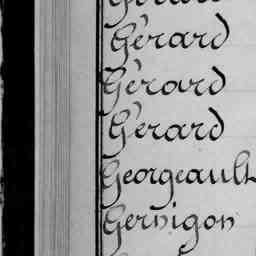 Gérard
Gérard
Gérard
Gérard
Georgeault
Gernigon